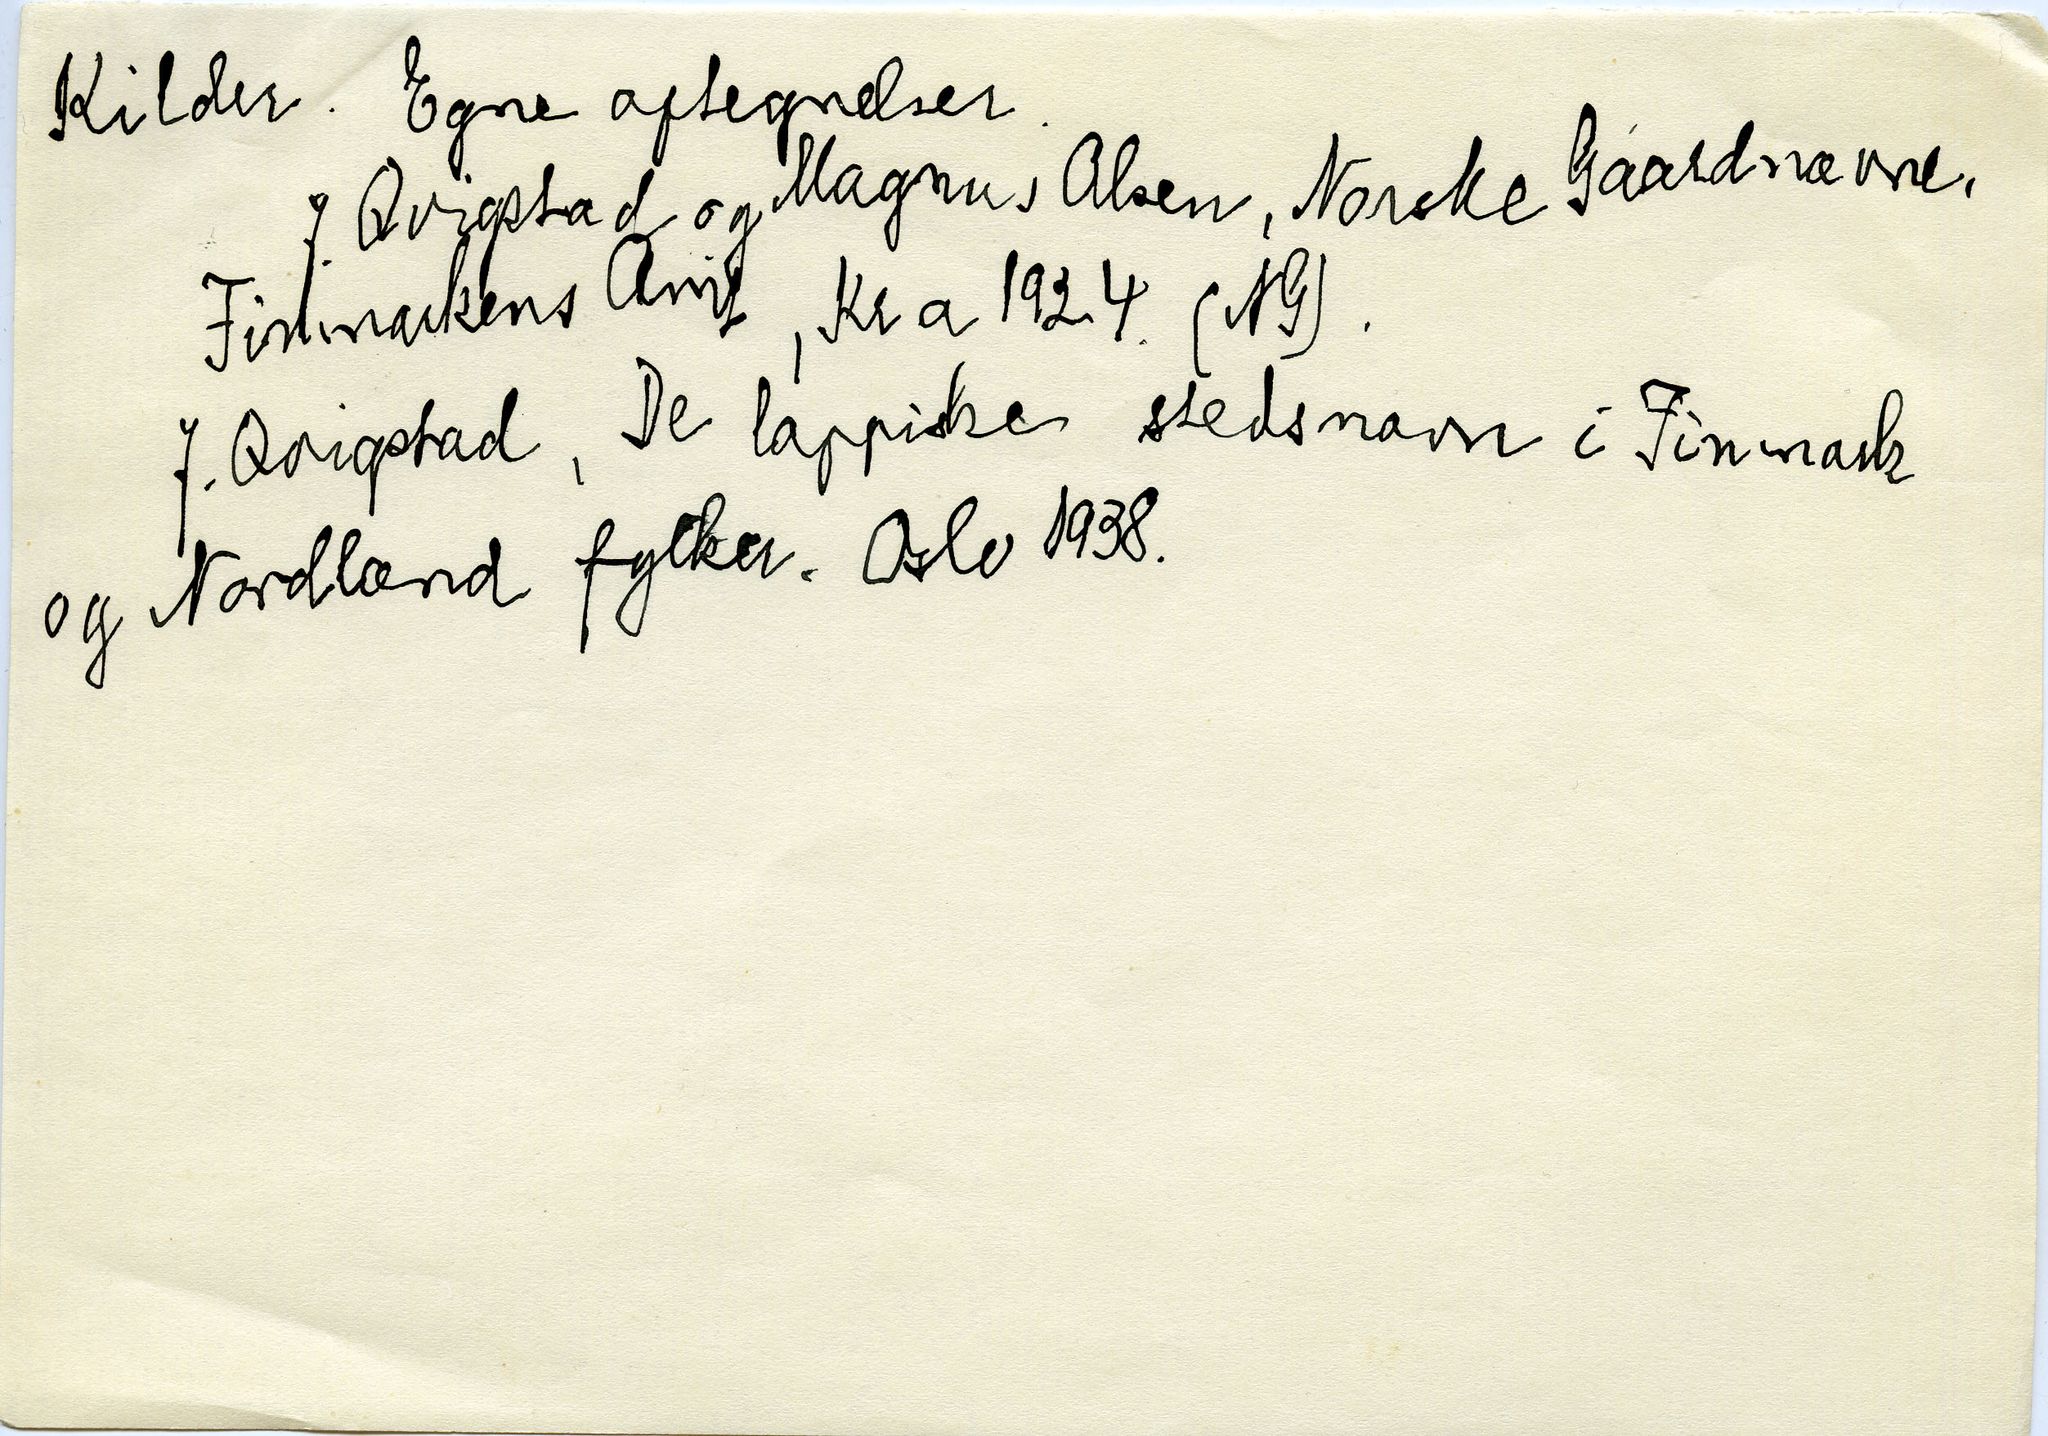 Kilder. Egne optegnelser.
J. Qvigstad og Magnus Olsen, Norske Gaardnavne,
Finmarkens Amt, Kra 1924. (NG).
J. Qvigstad, De lappiske stedsnavn i Finmark
og Nordland fylker. Oslo 1938.